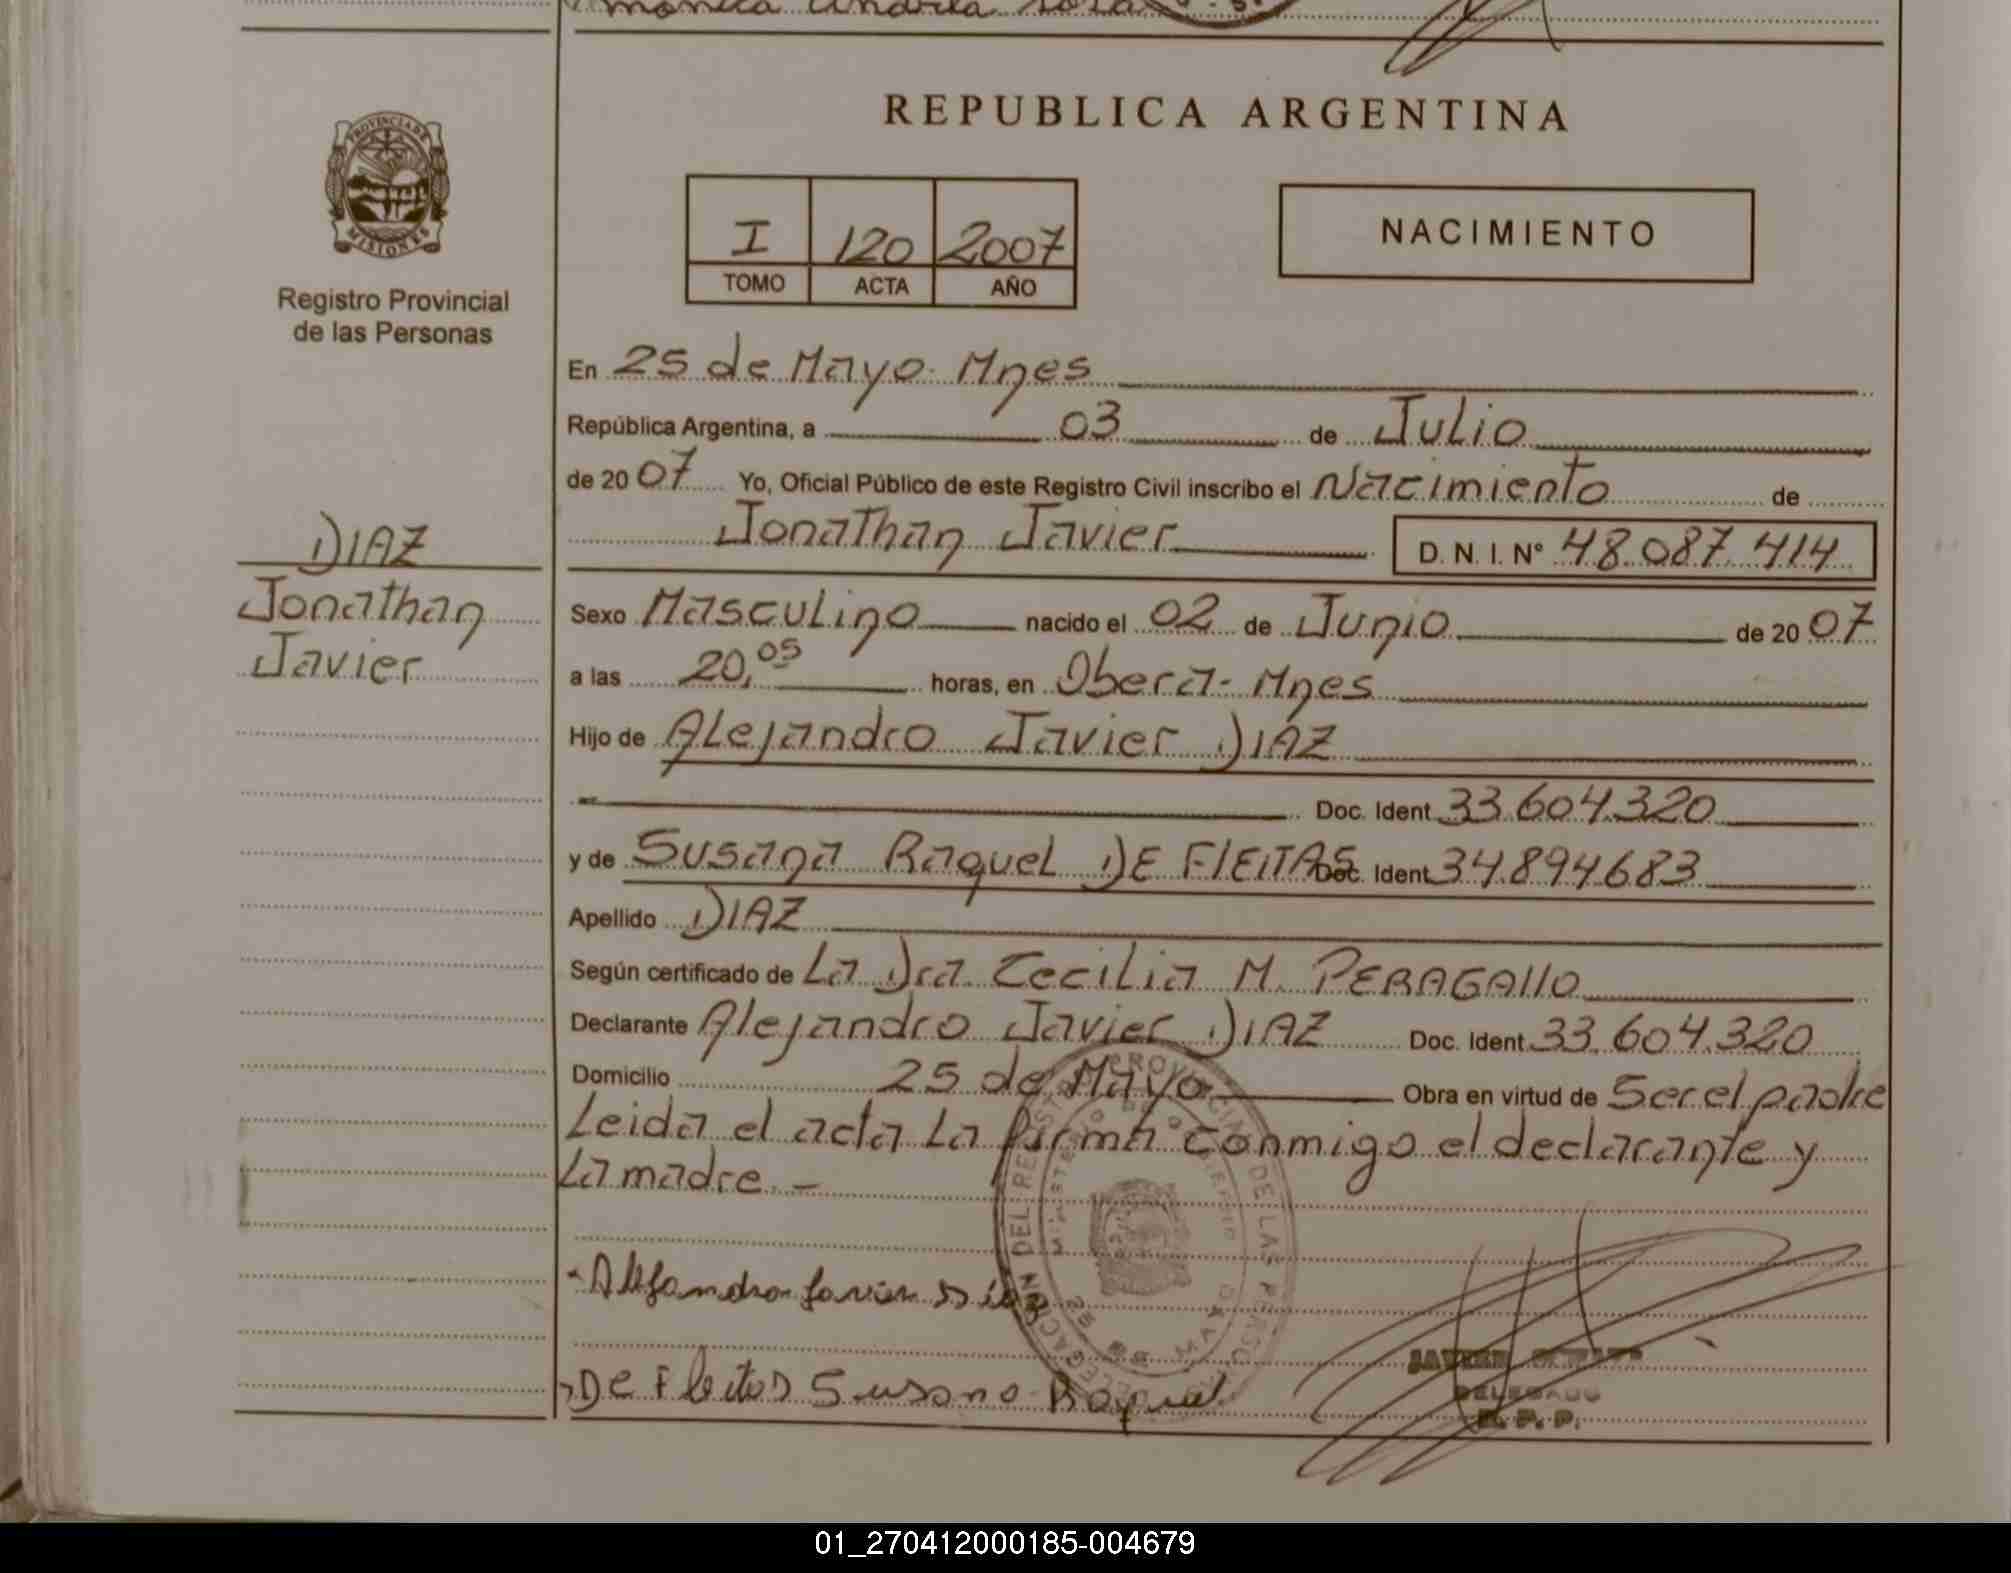 monica andrea
REPUBLICA ARGENTINA
PROVINCIA DE
MISIONES
Registro Provincial
de las Personas
I 120 2007
TOMO ACTA AÑO
NACIMIENTO
En 25 de Mayo. Mnes
República Argentina, a 03 de Julio
de 2007 Yo, Oficial Público de este Registro Civil inscribo el Nacimiento de
Jonathan Javier D. N. I. Nº 48.087.414
DIAZ
Jonathan
Javier
Sexo Masculino nacido el 02 de Junio de 2007
a las 20,05 horas, en Obera - Mnes
Hijo de Alejandro Javier DIAZ
Doc. Ident 33.604.320
y de Susana Raquel DE FlEITAS Doc. Ident 34.894683
Apellido DIAZ
Según certificado de La Dra Cecilia M. PERAGAllO
Declarante Alejandro Javier DIAZ Doc. Ident. 33.604.320
Domicilio 25 de Mayo Obra en virtud de Ser el padre
Leida el acta La firma conmigo el declarante y
La madre. -
Alejandro Javier Diaz
De Fleitas Susana Raquel
JAVIER
DELEGADO
R. P. P.
DELEGACIÓN DEL REGISTRO PROVINCIAL DE LAS PERSONAS
01_270412000185-004679